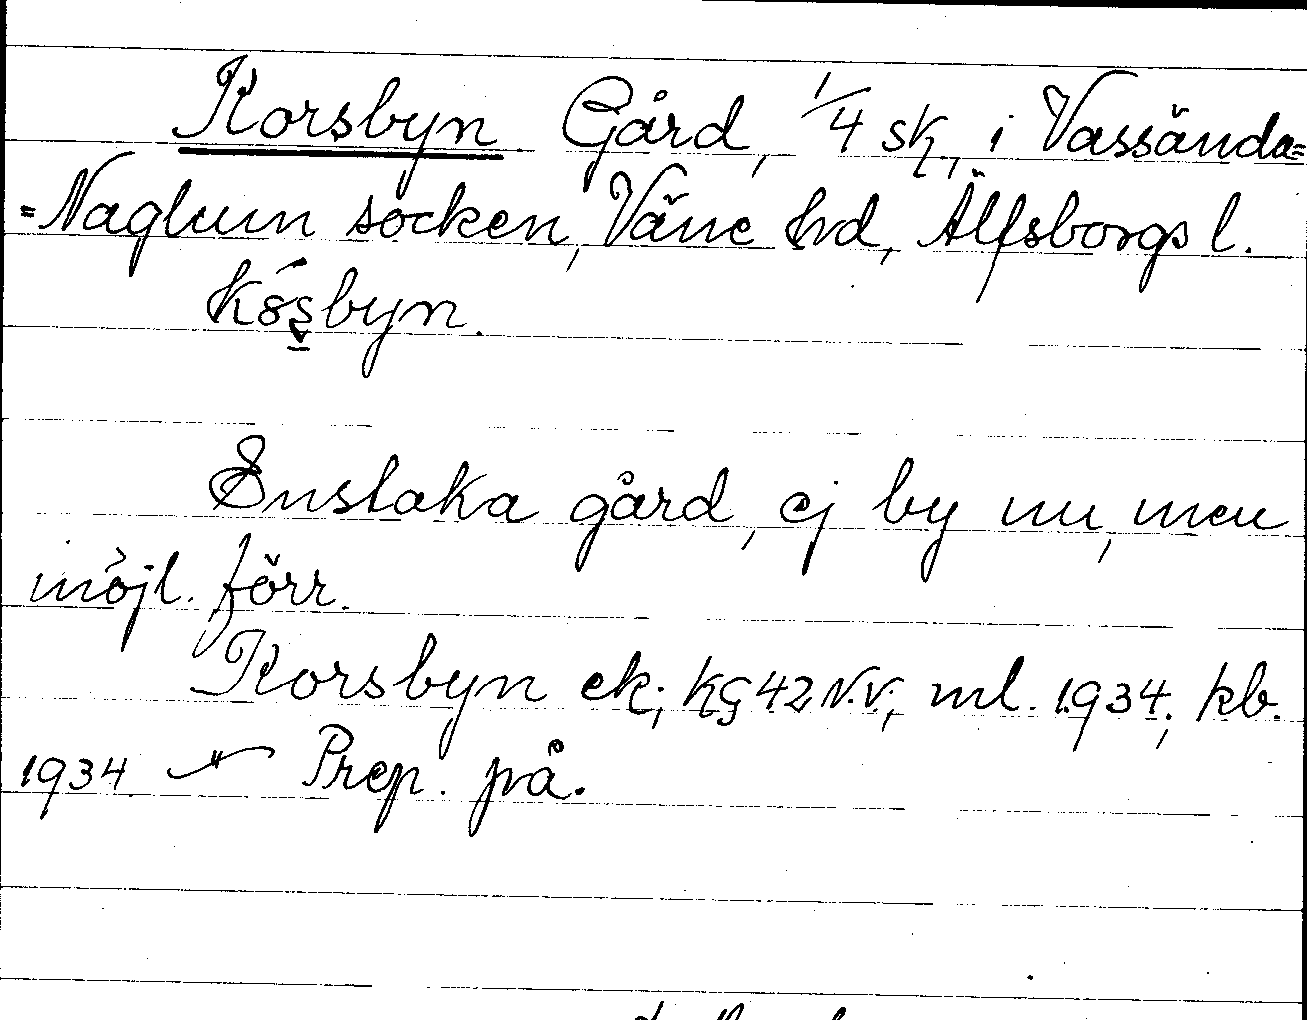 Korsbyn Gård, 1/4 sk., i Vassända=
=Naglum socken, Väne hd, Älfsborgs l.
Enstaka gård, ej by nu, men
möjl. förr.
Korsbyn ek; KG 42 N.V; ml. 1934; kb.
1934. Prep. på.